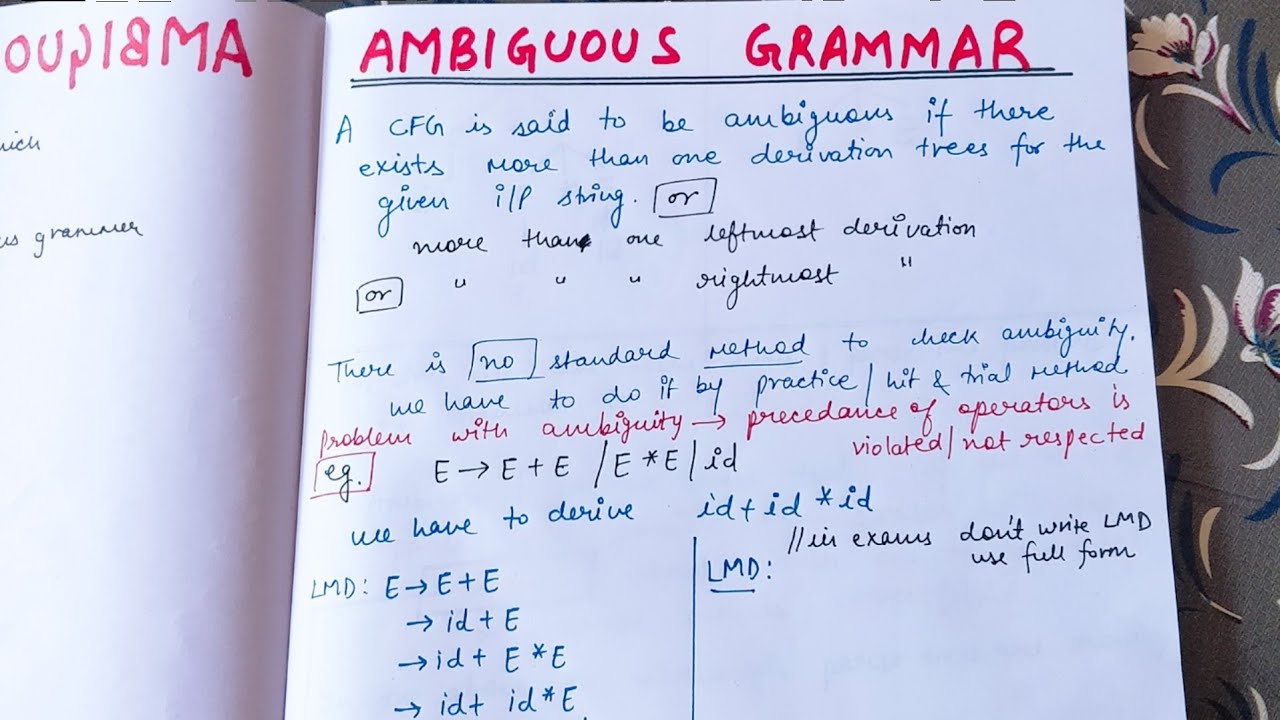 AMBIGUO
hich
us grammer
AMBIGUOUS GRAMMAR
A CFG is said to be ambiguous if there
exists more than one derivation trees for the
given i/p string. or
more than one leftmost derivation
or " " " rightmost "
There is no standard method to check ambiguity.
we have to do it by practice / hit & trial method
problem with ambiguity → precedance of operators is
violated / not respected
eg. E → E + E / E * E / id
we have to derive id + id * id
// in exams don't write LMD
use full form
LMD: E → E + E
→ id + E
→ id + E * E
→ id + id * E
LMD: